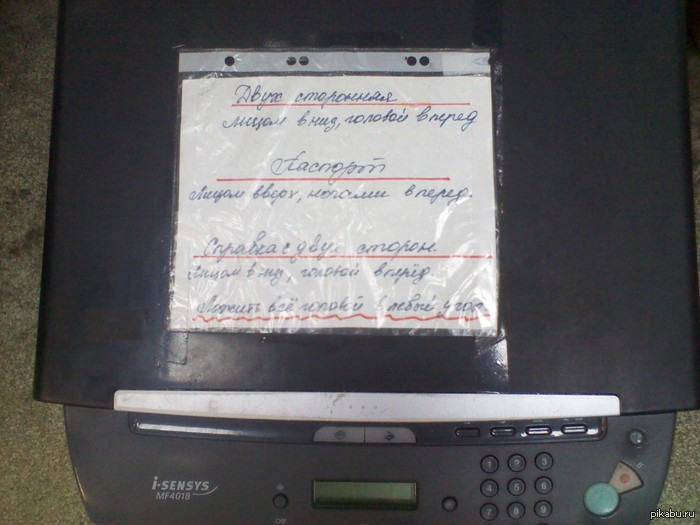 Двух сторонняя
лицом вниз, головой вперед
Паспорт
Лицом вверх, ногами вперед.
Справка с двух сторон.
Лицом вниз, головой вперёд.
Ложить всё головой в левый угол.
i-SENSYS
MF4018
1 2 3
4 5 6
7 8 9
* 0 #
pikabu.ru